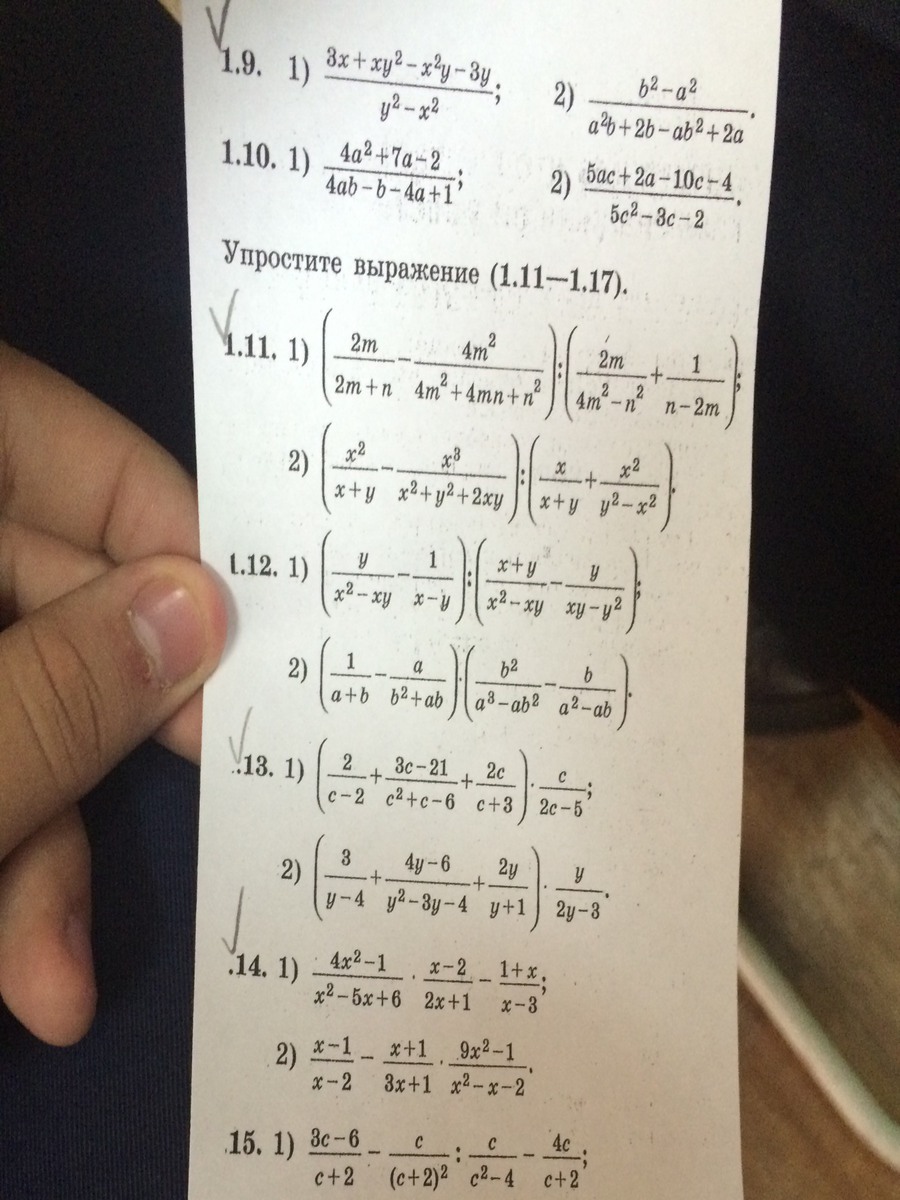 1.9. 1) (3x+xy²−x²y−3y)/(y²−x²); 2) (b²−a²)/(a²b+2b−ab²+2a).
1.10. 1) (4a²+7a−2)/(4ab−b−4a+1); 2) (5ac+2a−10c−4)/(5c²−3c−2).
Упростите выражение (1.11—1.17).
1.11. 1) (2m/(2m+n) − 4m²/(4m²+4mn+n²)) : (2m/(4m²−n²) + 1/(n−2m));
2) (x²/(x+y) − x³/(x²+y²+2xy)) : (x/(x+y) + x²/(y²−x²)).
1.12. 1) (y/(x²−xy) − 1/(x−y)) : ((x+y)/(x²−xy) − y/(xy−y²));
2) (1/(a+b) − a/(b²+ab)) : (b²/(a³−ab²) − b/(a²−ab)).
.13. 1) (2/(c−2) + (3c−21)/(c²+c−6) + 2c/(c+3)) · c/(2c−5);
2) (3/(y−4) + (4y−6)/(y²−3y−4) + 2y/(y+1)) · y/(2y−3).
.14. 1) (4x²−1)/(x²−5x+6) · (x−2)/(2x+1) − (1+x)/(x−3);
2) (x−1)/(x−2) − (x+1)/(3x+1) · (9x²−1)/(x²−x−2).
.15. 1) (3c−6)/(c+2) − c/(c+2)² : c/(c²−4) − 4c/(c+2);